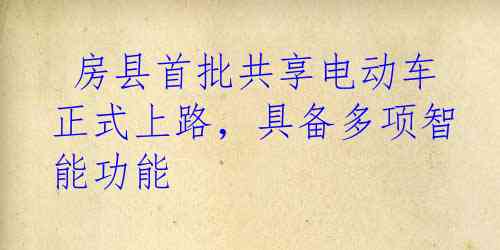 房县首批共享电动车
正式上路，具备多项智
能功能